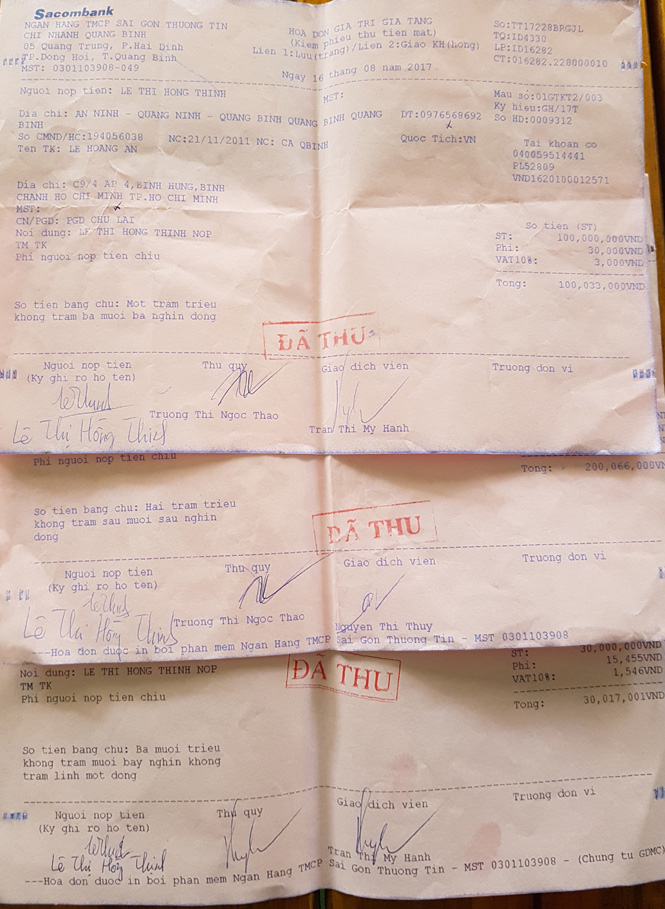 Sacombank
NGAN HANG TMCP SAI GON THUONG TIN
CHI NHANH QUANG BINH
05 Quang Trung, P.Hai Dinh
TP.Dong Hoi, T.Quang Binh
MST: 0301103908-049
HOA DON GIA TRI GIA TANG
(Kiem phieu thu tien mat)
Lien 1:Luu(trang)/Lien 2:Giao KH(hong)
Ngay 16 thang 08 nam 2017
SO:TT17228BRGJL
TQ:ID4330
LP:ID16282
CT:016282.228000010
Nguoi nop tien: LE THI HONG THINH
MST:
Mau so:01GTKT2/003
Ky hieu:GH/17T
So HD:0009312
Dia chi: AN NINH - QUANG NINH - QUANG BINH QUANG BINH QUANG
BINH
DT:0976568692
So CMND/HC:194056038 NC:21/11/2011 NC: CA QBINH
Quoc Tich:VN
Ten TK: LE HOANG AN
Tai khoan co
040059514441
PL52809
VND1620100012571
Dia chi: C9/4 AP 4,BINH HUNG,BINH
CHANH HO CHI MINH TP.HO CHI MINH
MST:
CN/PGD: PGD CHU LAI
Noi dung: LE THI HONG THINH NOP
TM TK
Phi nguoi nop tien chiu
So tien (ST)
ST: 100,000,000VND
Phi: 30,000VND
VAT10%: 3,000VND
Tong: 100,033,000VND
So tien bang chu: Mot tram trieu
khong tram ba muoi ba nghin dong
ĐÃ THU
Nguoi nop tien Thu quy Giao dich vien Truong don vi
(Ky ghi ro ho ten)
Lê Thị Hồng Thinh
Truong Thi Ngoc Thao
Tran Thi My Hanh
Phi nguoi nop tien chiu
Tong: 200,066,000VND
So tien bang chu: Hai tram trieu
khong tram sau muoi sau nghin
dong
ĐÃ THU
Nguoi nop tien Thu quy Giao dich vien Truong don vi
(Ky ghi ro ho ten)
Lê Thị Hồng Thinh
Truong Thi Ngoc Thao
Nguyen Thi Thuy
---Hoa don duoc in boi phan mem Ngan Hang TMCP Sai Gon Thuong Tin - MST 0301103908
Noi dung: LE THI HONG THINH NOP
TM TK
Phi nguoi nop tien chiu
ĐÃ THU
ST: 30,000,000VND
Phi: 15,455VND
VAT10%: 1,546VND
Tong: 30,017,001VND
So tien bang chu: Ba muoi trieu
khong tram muoi bay nghin khong
tram linh mot dong
Nguoi nop tien Thu quy Giao dich vien Truong don vi
(Ky ghi ro ho ten)
Lê Thị Hồng Thinh
Tran Thi My Hanh
---Hoa don duoc in boi phan mem Ngan Hang TMCP Sai Gon Thuong Tin - MST 0301103908 - (Chung tu GDMC)